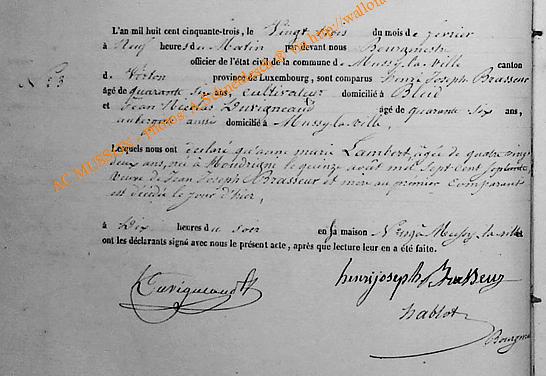 L'an mil huit cent cinquante-trois, le Vingt trois du mois de fevrier
à Neuf heures du Matin par devant nous Bourgmestre
officier de l'état civil de la commune de Mussy-la-ville canton
d. Virton province de Luxembourg, sont comparus Henri Joseph Brasseur
âgé de quarante six ans, cultivateur domicilié à Bleid
et Jean Nicolas Duvigneaud âgé de quarante six ans,
aubergiste aussi domicilié à Mussy-la-ville,
N° 3
Lesquels nous ont déclaré qu'anne marie Lambert, agée de quatre vingt
deux ans, née à le quinze août mil Sept cent Septante
Veuve de Jean Joseph Brasseur et mere au premier Comparant
est décédée le jour d'hier,
à Dix heures du soir en sa maison Mussy-la-ville
ont les déclarants signé avec nous le présent acte, après que lecture leur en a été faite.
Duvigneaud
henrijoseph Brasseur
hablot
Bourgm
AC MUSSON - Photos